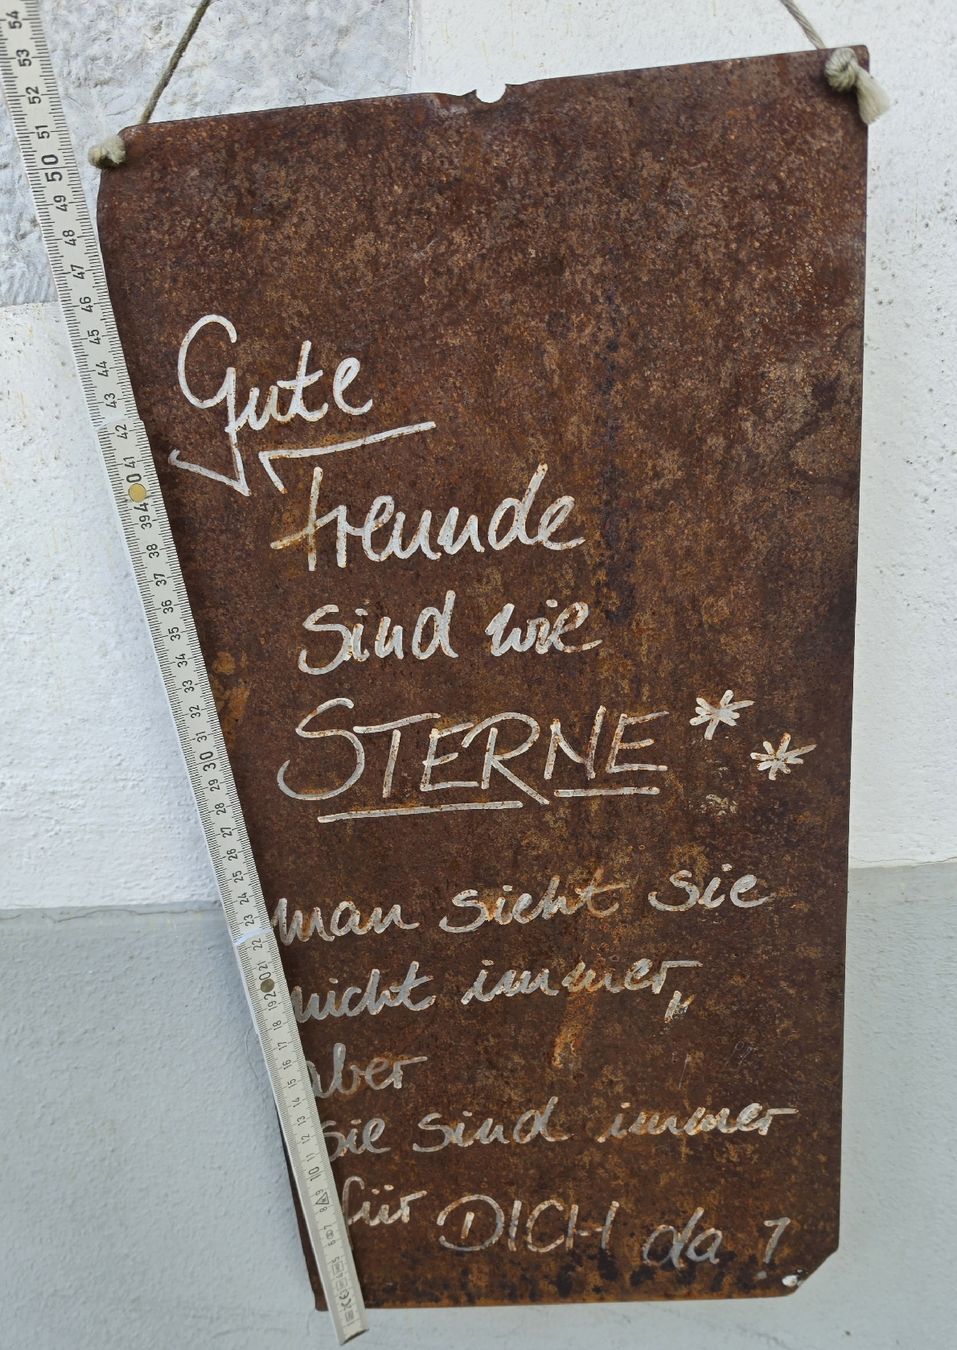 Gute
freunde
sind wie
STERNE **
man sieht sie
nicht immer,
aber
sie sind immer
für DICH da!
54
53
52
51
50
49
48
47
46
45
44
43
42
41
40
39
38
37
36
35
34
33
32
31
30
29
28
27
26
25
24
23
22
21
20
19
18
17
16
15
14
13
12
11
10
9
8
7
6